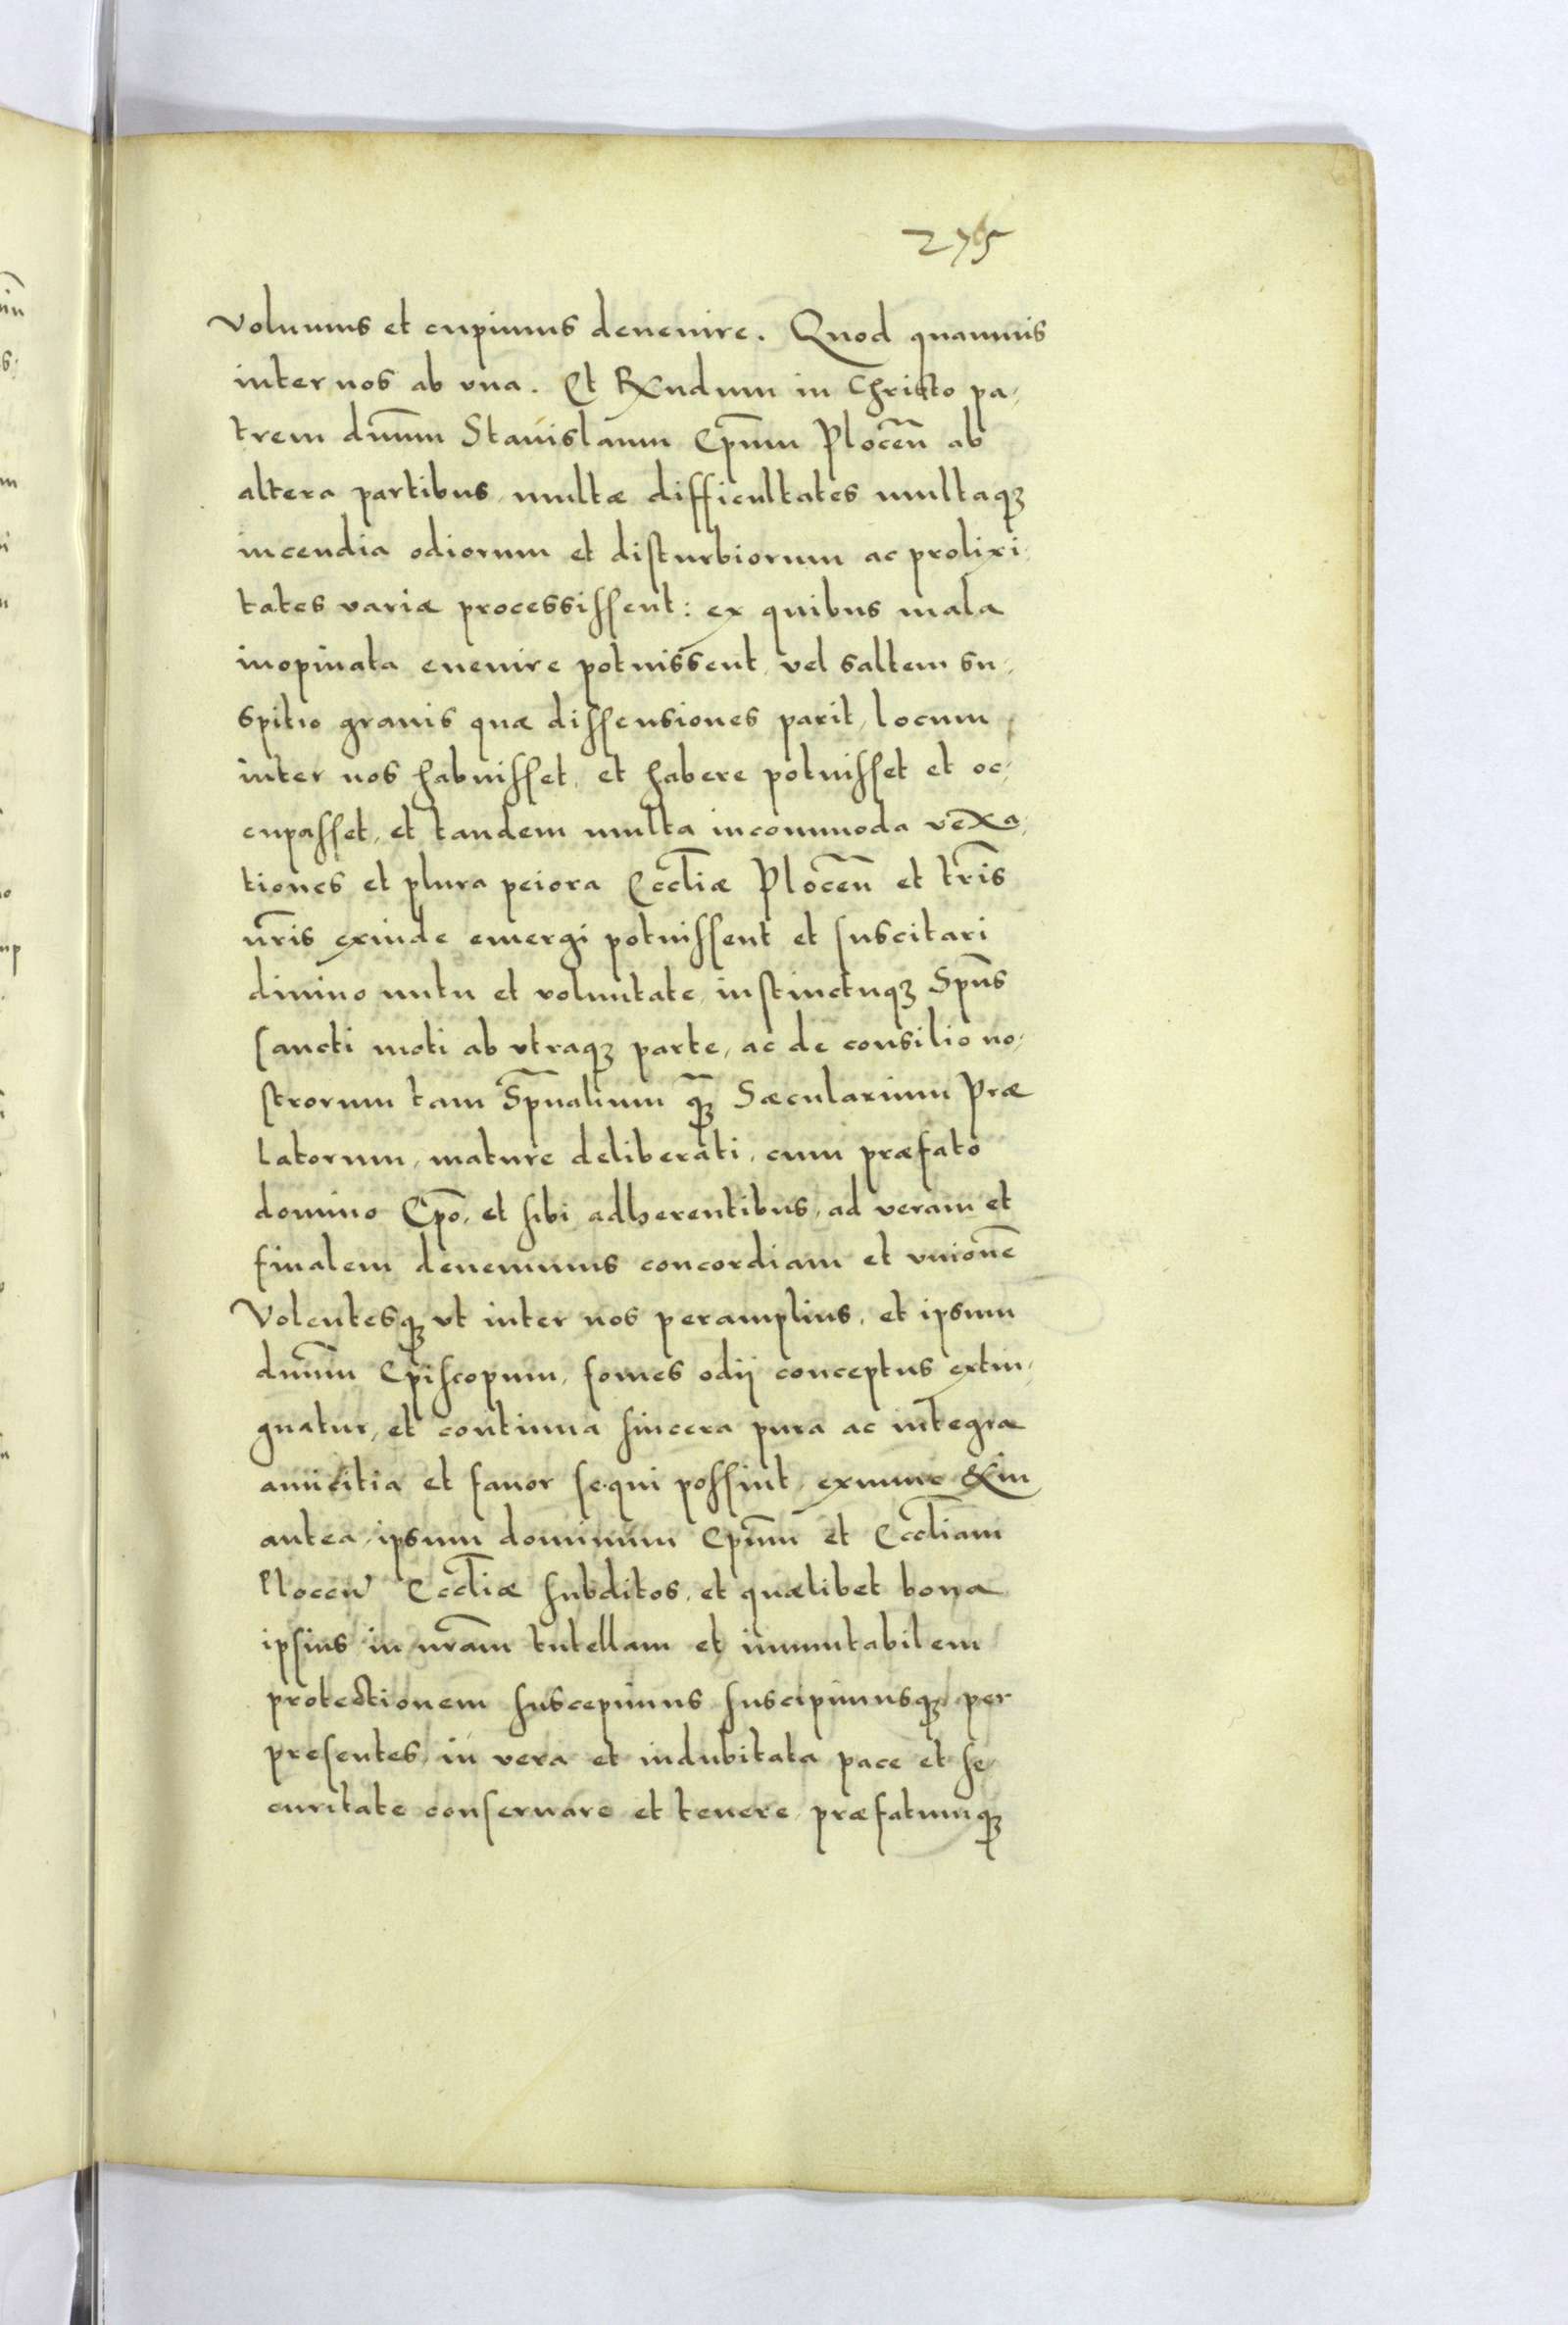 275
volumus et cupimus deuenire. Quod quamuis
inter nos ab vna. Et Rxndum in Christo pa,
trem dnm̄ Stanislaum Epm̄ Plocen̄ ab
altera partibus, multæ difficultates multaqꝫ
incendia odiorum et disturbiorum ac prolixi,
tates variæ processissent: ex quibus mala
inopinata euenire potuissent, vel saltem su,
spitio grauis quæ dissensiones parit, locum
inter nos habuisset, et habere potuisset et oc,
cupasset, et tandem multa incommoda vexa,
tiones et plura peiora Eccl̄iæ Plocen̄ et tr̄is
nr̄is exinde emergi potuissent et suscitari
diuino nutu et voluntate, instinctuqꝫ Spūs
sancti moti ab vtraqꝫ parte, ac de consilio no,
strorum tam Sp̄ualium qꝫ̄ Sæcularium Præ
latorum, mature deliberati, cum præfato
domino Ep̄o, et sibi adherentibus, ad veram et
finalem deuenimus concordiam et vnionē
Volentesqꝫ vt inter nos peramplius, et ipsum
dnm̄ Episcopum, fomes odij conceptus extin,
guatur, et continua sincera pura ac integra
amicitia et fauor sequi possint, exnunc & in
antea, ipsum dominum Epm̄ et Eccl̄iam
Plocen̄ Eccl̄iæ subditos, et quælibet bona
ipsius in nr̄am tutellam et immutabilem
protectionem suscepimus suscipimusqꝫ per
presentes, in vera et indubitata pace et se,
curitate conseruare et tenere, præfatumqꝫ